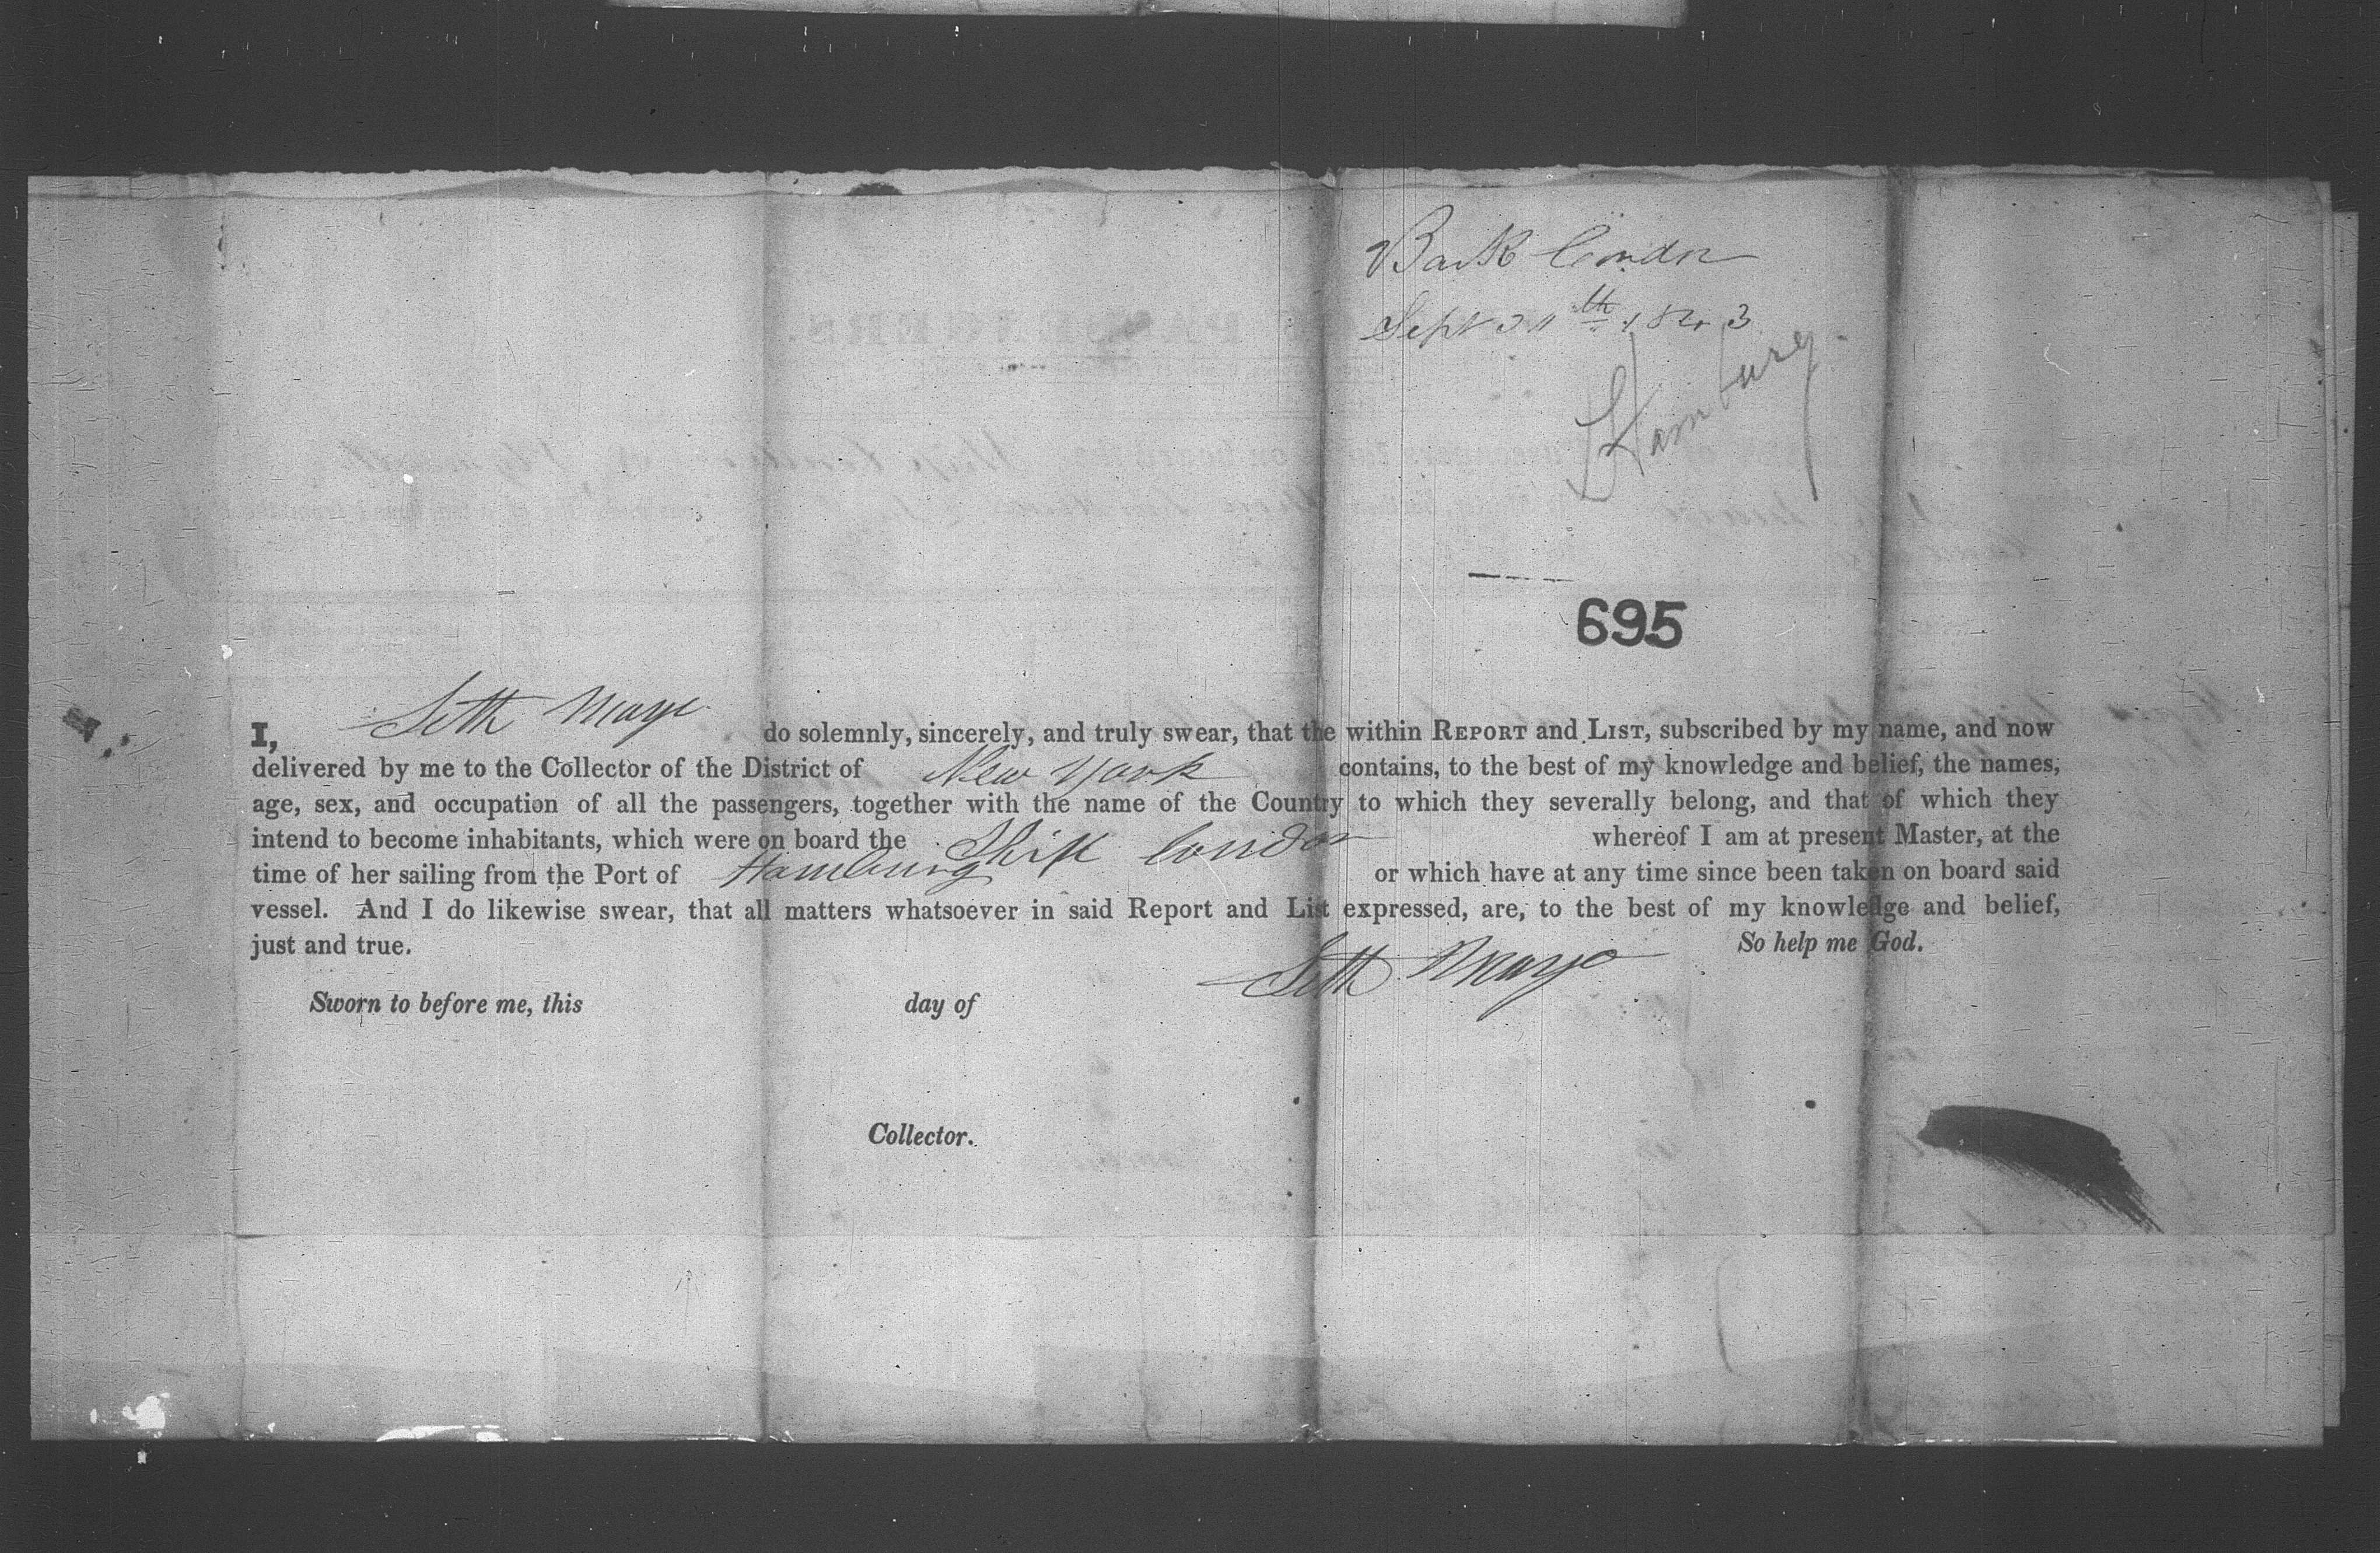 Bark Condor
Sept th 1843
Hamburg
695
I, Seth Mayo do solemnly, sincerely, and truly swear, that the within REPORT and LIST, subscribed by my name, and now
delivered by me to the Collector of the District of New York contains, to the best of my knowledge and belief, the names,
age, sex, and occupation of all the passengers, together with the name of the Country to which they severally belong, and that of which they
intend to become inhabitants, which were on board the Ship Condor whereof I am at present Master, at the
time of her sailing from the Port of Hamburg or which have at any time since been taken on board said
vessel. And I do likewise swear, that all matters whatsoever in said Report and List expressed, are, to the best of my knowledge and belief,
just and true. So help me God.
Seth Mayo
Sworn to before me, this day of
Collector.